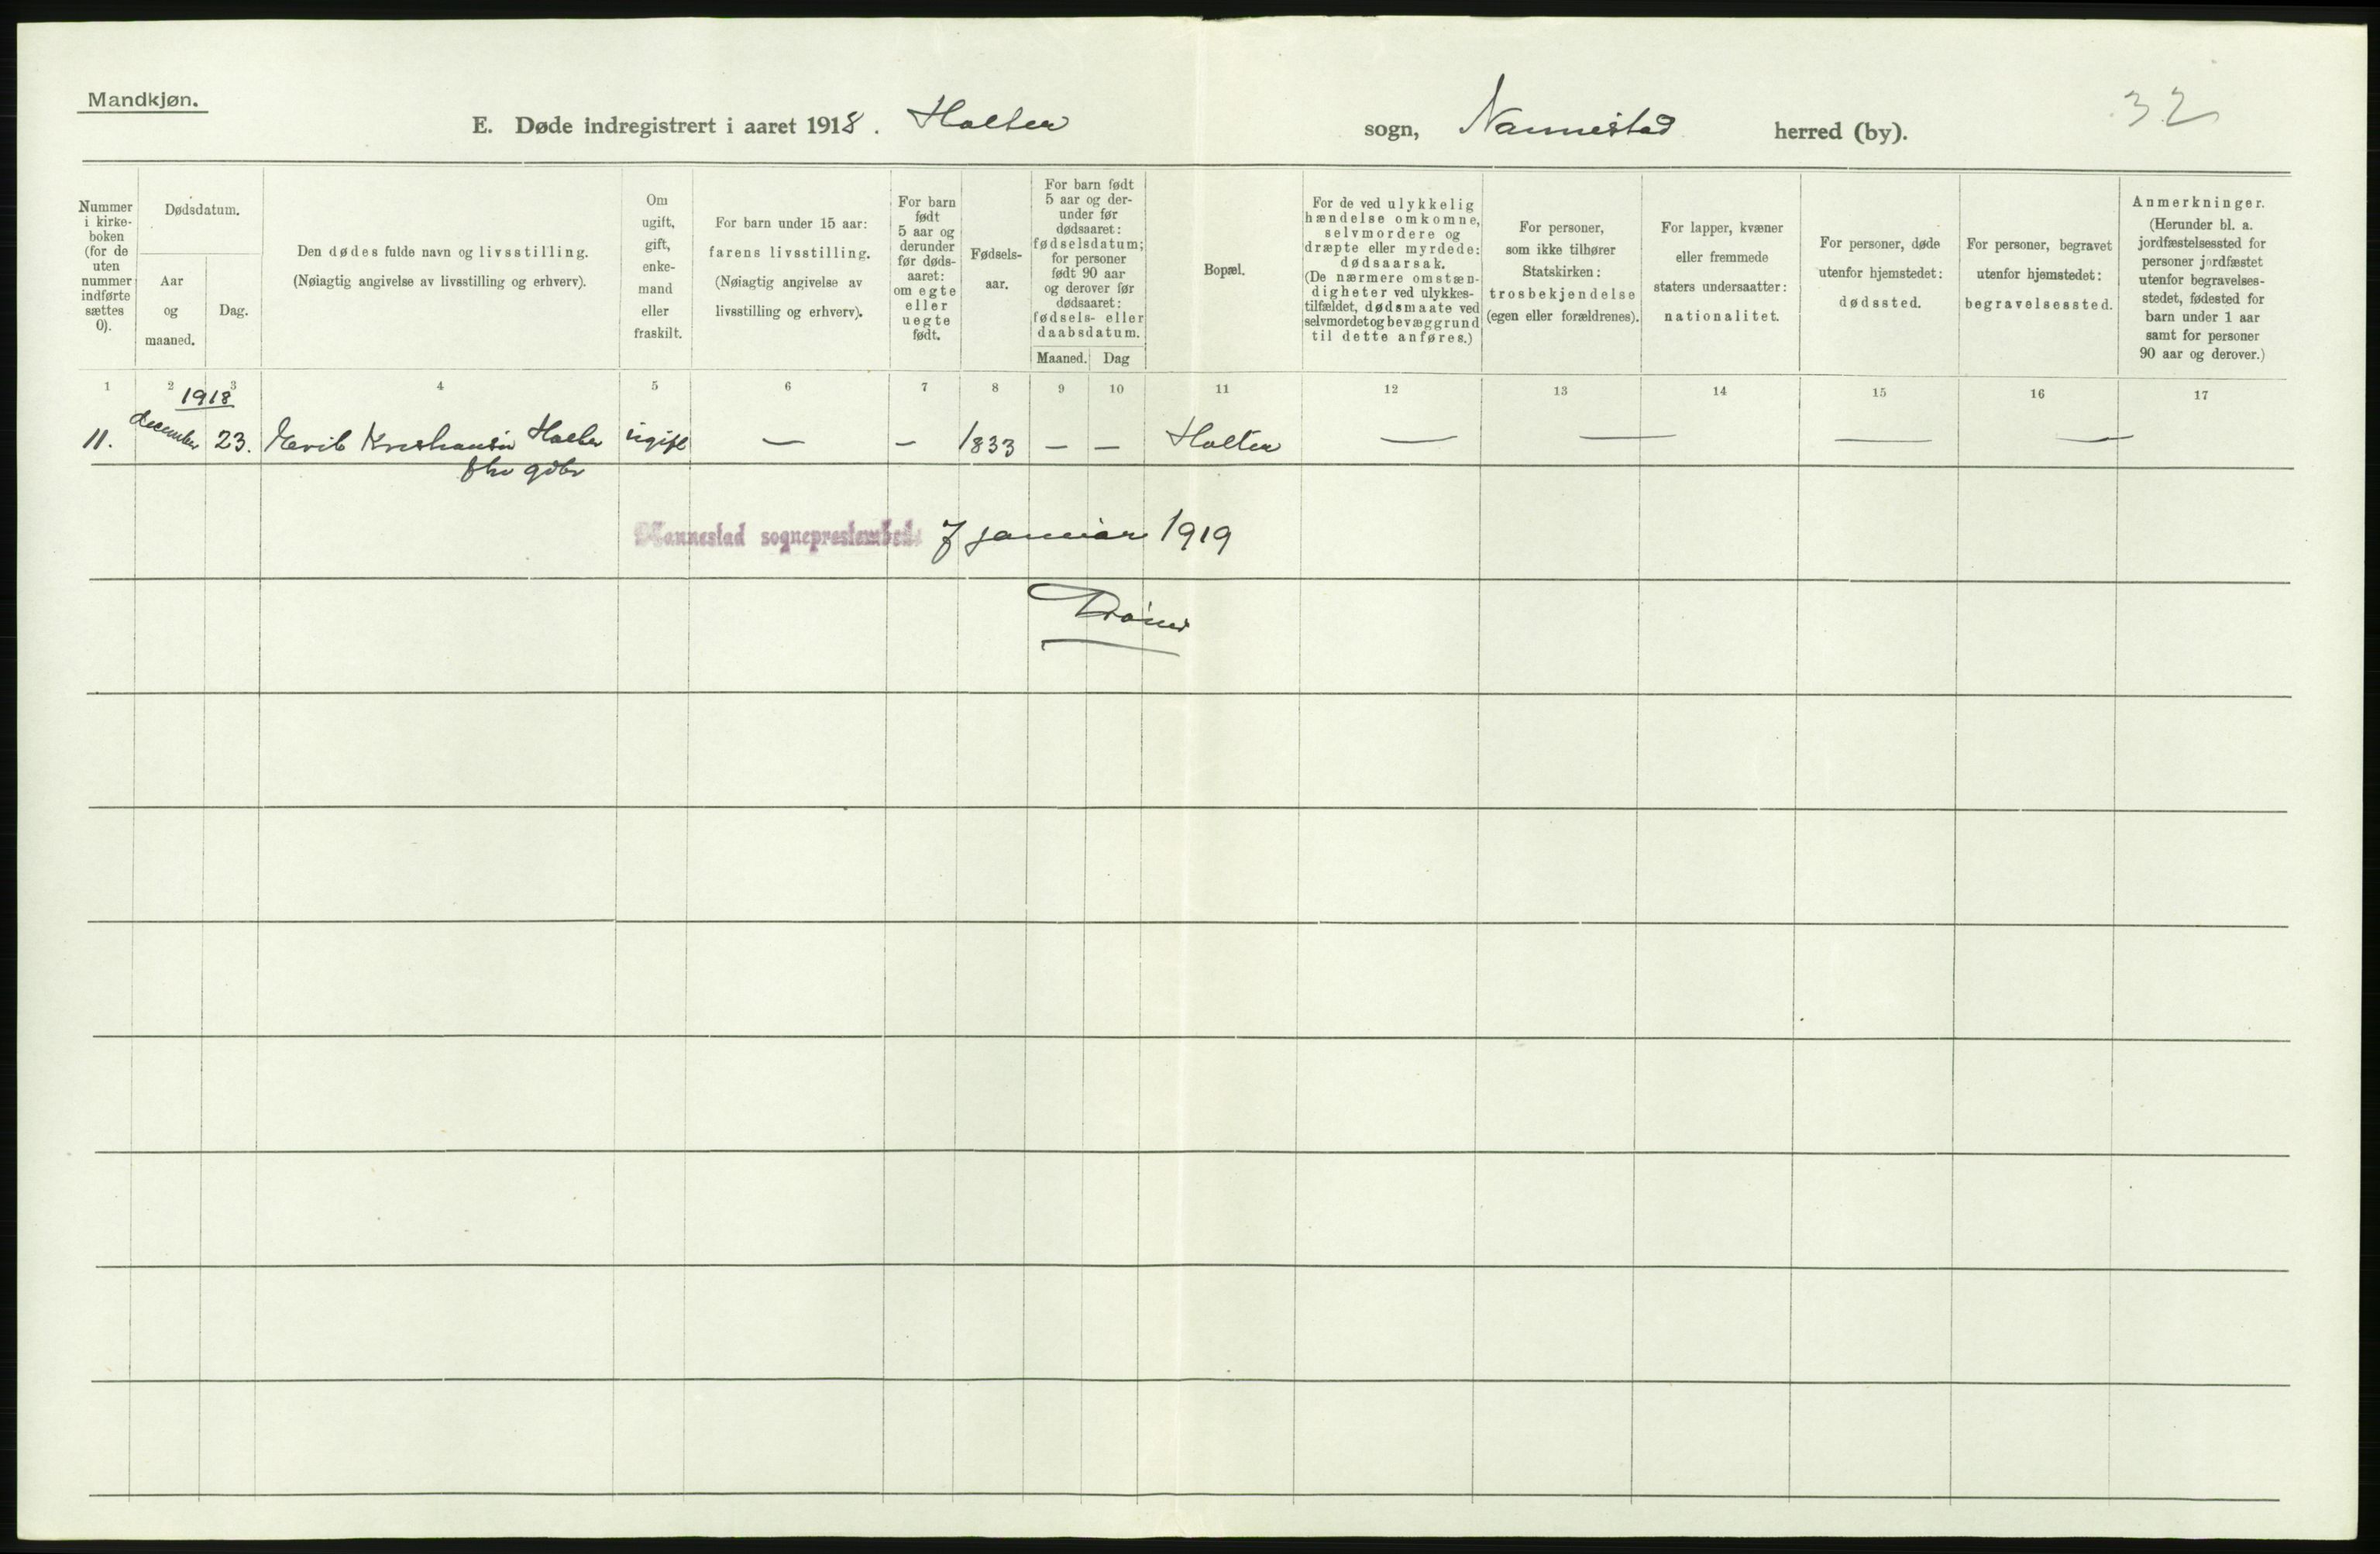 Mandkjøn.
E. Døde indregistrert i aaret 1918. Holter sogn, Nannestad herred (by).
32
Nummer i kirke-boken (for de uten nummer indførte sættes 0).
Dødsdatum.
Aar og maaned.
Dag.
Den dødes fulde navn og livsstilling.
(Nøiagtig angivelse av livsstilling og erhverv).
Om ugift, gift, enke-mand eller fraskilt.
For barn under 15 aar:
farens livsstilling.
(Nøiagtig angivelse av
livsstilling og erhverv).
For barn født 5 aar og derunder før døds-aaret: om egte eller uegte født.
Fødsels-aar.
For barn født
5 aar og der-
under før
dødsaaret:
fødselsdatum;
for personer
født 90 aar
og derover før
dødsaaret:
fødsels- eller
daabsdatum.
Maaned. Dag
Bopæl.
For de ved ulykkelig
hændelse omkomne,
selvmordere og
dræpte eller myrdede:
dødsaarsak.
(De nærmere omstæn-
digheter ved ulykkes-
tilfældet, dødsmaate ved
selvmordet og bevæggrund
til dette anføres.)
For personer,
som ikke tilhører
Statskirken:
trosbekjendelse
(egen eller forældrenes).
For lapper, kvæner
eller fremmede
staters undersaatter:
nationalitet.
For personer, døde
utenfor hjemstedet:
dødssted.
For personer, begravet
utenfor hjemstedet:
begravelsessted.
Anmerkninger.
(Herunder bl. a.
jordfæstelsessted for
personer jordfæstet
utenfor begravelses-
stedet, fødested for
barn under 1 aar
samt for personer
90 aar og derover.)
1 2 3 4 5 6 7 8 9 10 11 12 13 14 15 16 17
1918
11. december 23. Kristiansen Holter ugift — — 1833 — — Holter — — — —
Nannestad sogneprestembede 7 januar 1919